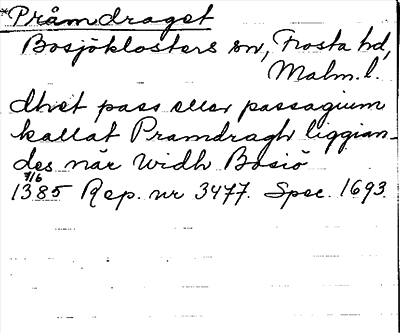 *Pråmdraget
Bosjöklosters sn, Frosta hd,
Malm. l.
dhet pass eller passagium
kallat Pramdragh liggian-
des när widh Bosiö
7/6
1385 Rep. nr 3477. Spec. 1693.